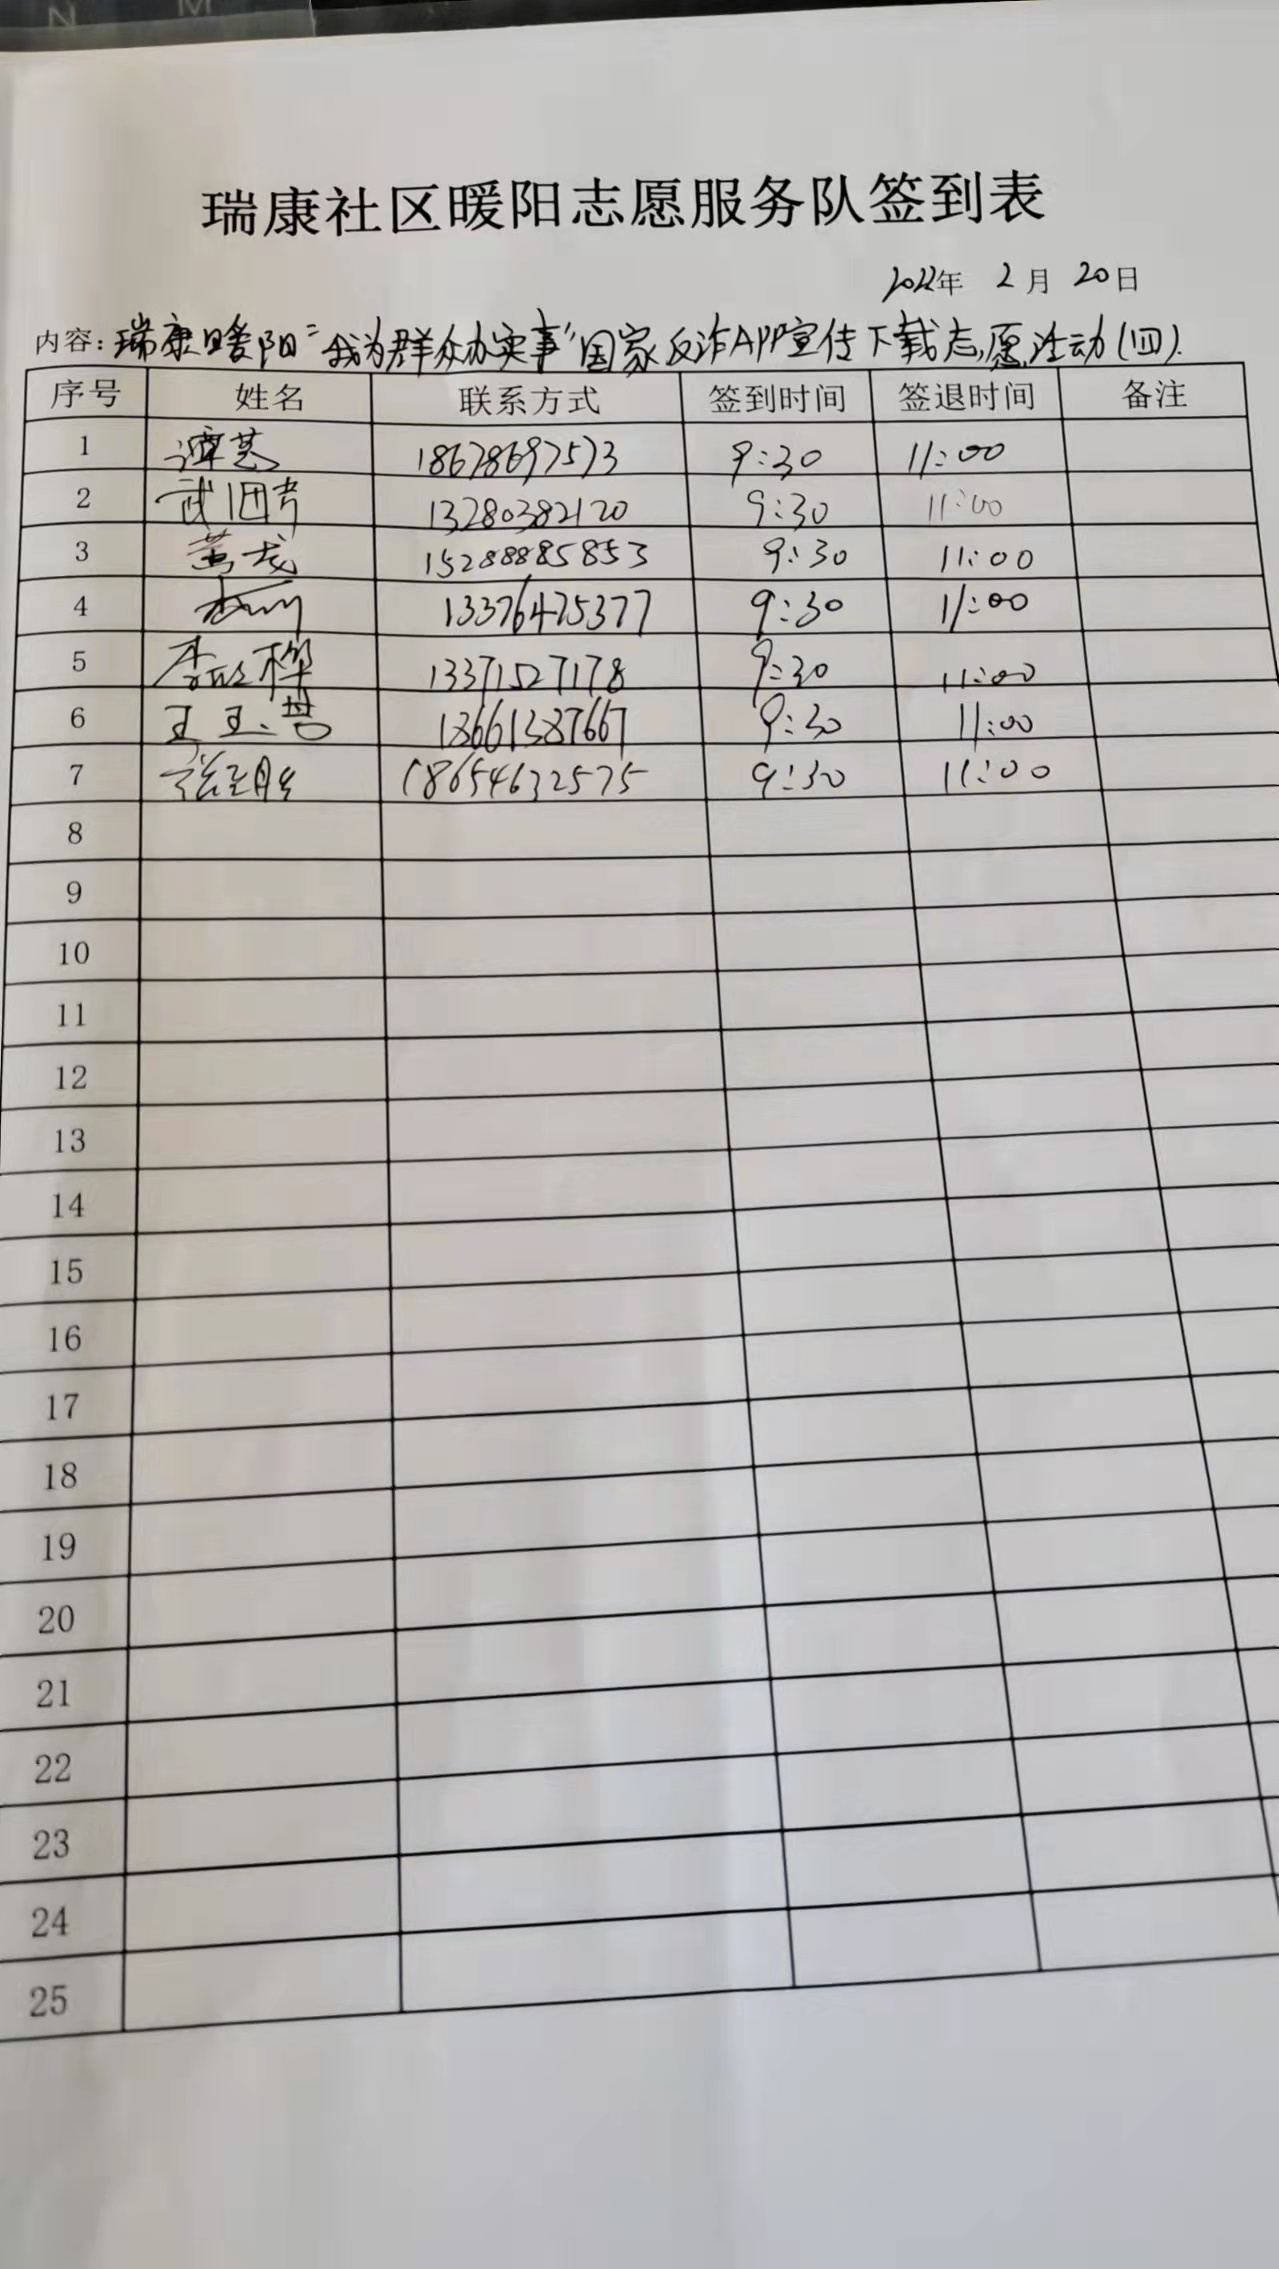 N M
瑞康社区暖阳志愿服务队签到表
2022年 2月 20日
内容：瑞康暖阳“我为群众办实事”国家反诈APP宣传下载志愿活动(四).
序号 姓名 联系方式 签到时间 签退时间 备注
1 谭芸 18678697573 9:30 11:00
2 13280382120 9:30 11:00
3 黄龙 15288885853 9:30 11:00
4 13376475377 9:30 11:00
5 13371527178 9:30 11:00
6 18661387667 9:30 11:00
7 18654632575 9:30 11:00
8
9
10
11
12
13
14
15
16
17
18
19
20
21
22
23
24
25